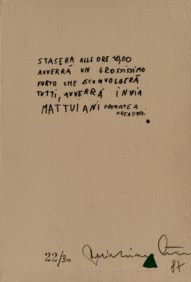 STASERA ALLE ORE
AVVERRÀ UN GROSSISSIMO
FURTO CHE SCONVOLGERÀ
TUTTI, AVVERRÀ IN VIA
MATTUIANI
22/30
87